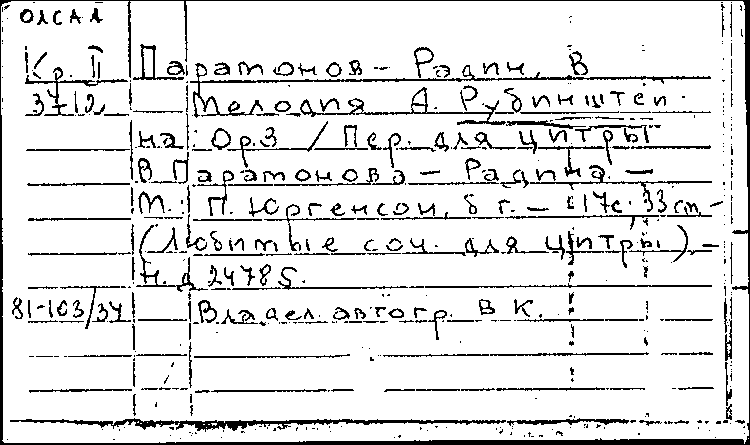 ОЛСАА
Кр. II Парамонов – Радин, В
3712 Мелодия А. Рубинштейн.
на Ор.3 / Пер. для цитры
В Парамонова – Радина. –
М.: П. Юргенсон, б г. – 17с; 33 см, –
(Любимые соч. для цитры). –
Н. д 24785.
81-103/34 Владел. автогр. В К.